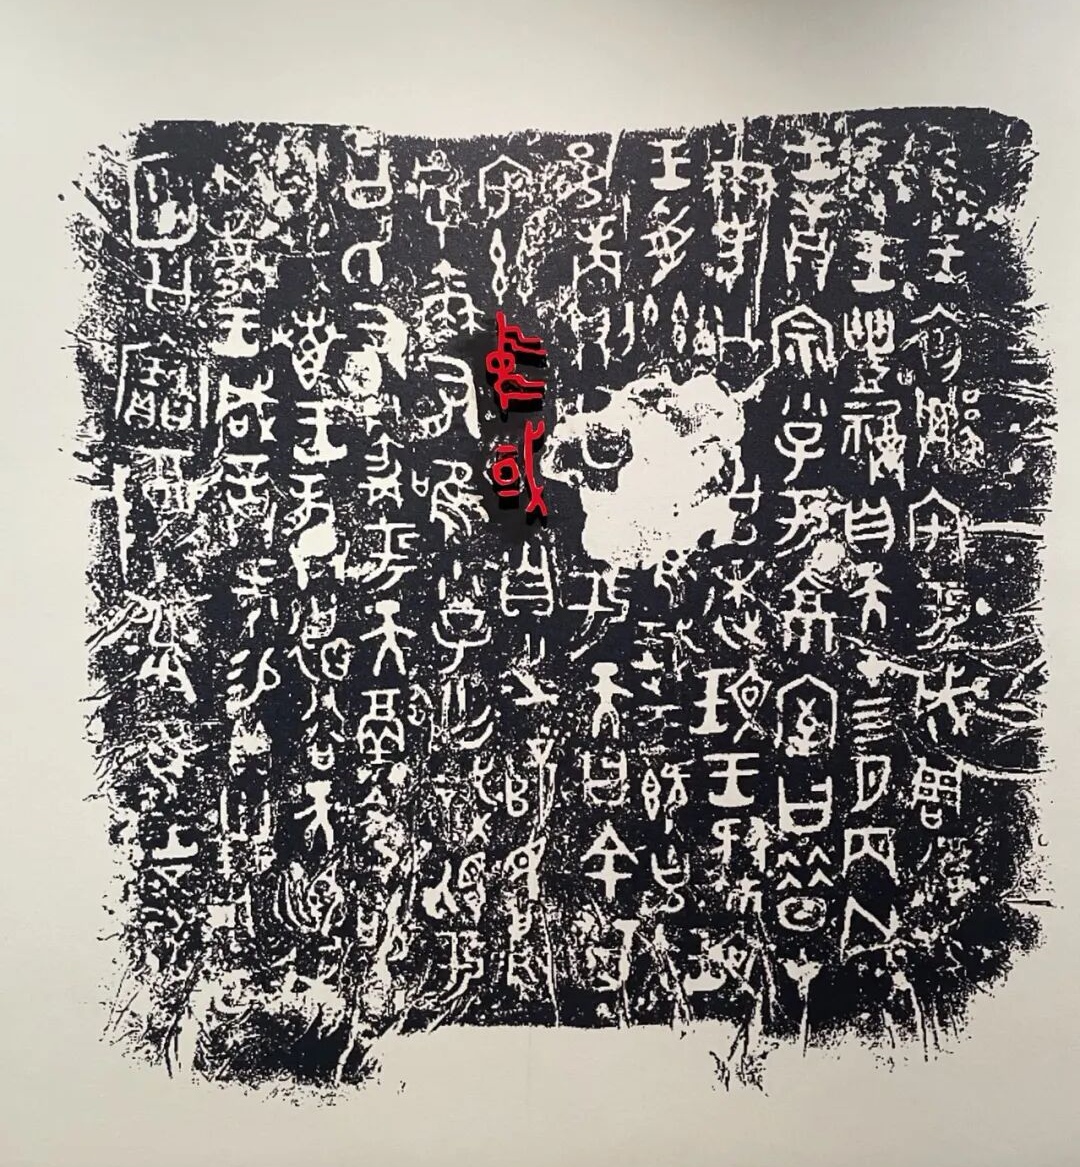 隹王初遷宅于成周復禀
珷王豐祼自天才四月丙戌
王誥宗小子于京室曰昔才
爾考公氏克逨玟王肆玟
王受茲大令隹珷王既克大
邑商則廷告于天曰余其
宅茲中或自之乂民烏
虖爾有唯小子亡識視于
公氏有爵于天徹令敬
享哉叀王恭德裕天訓我
不敏王咸誥何易貝卅朋用乍
公寶尊彝隹王五祀